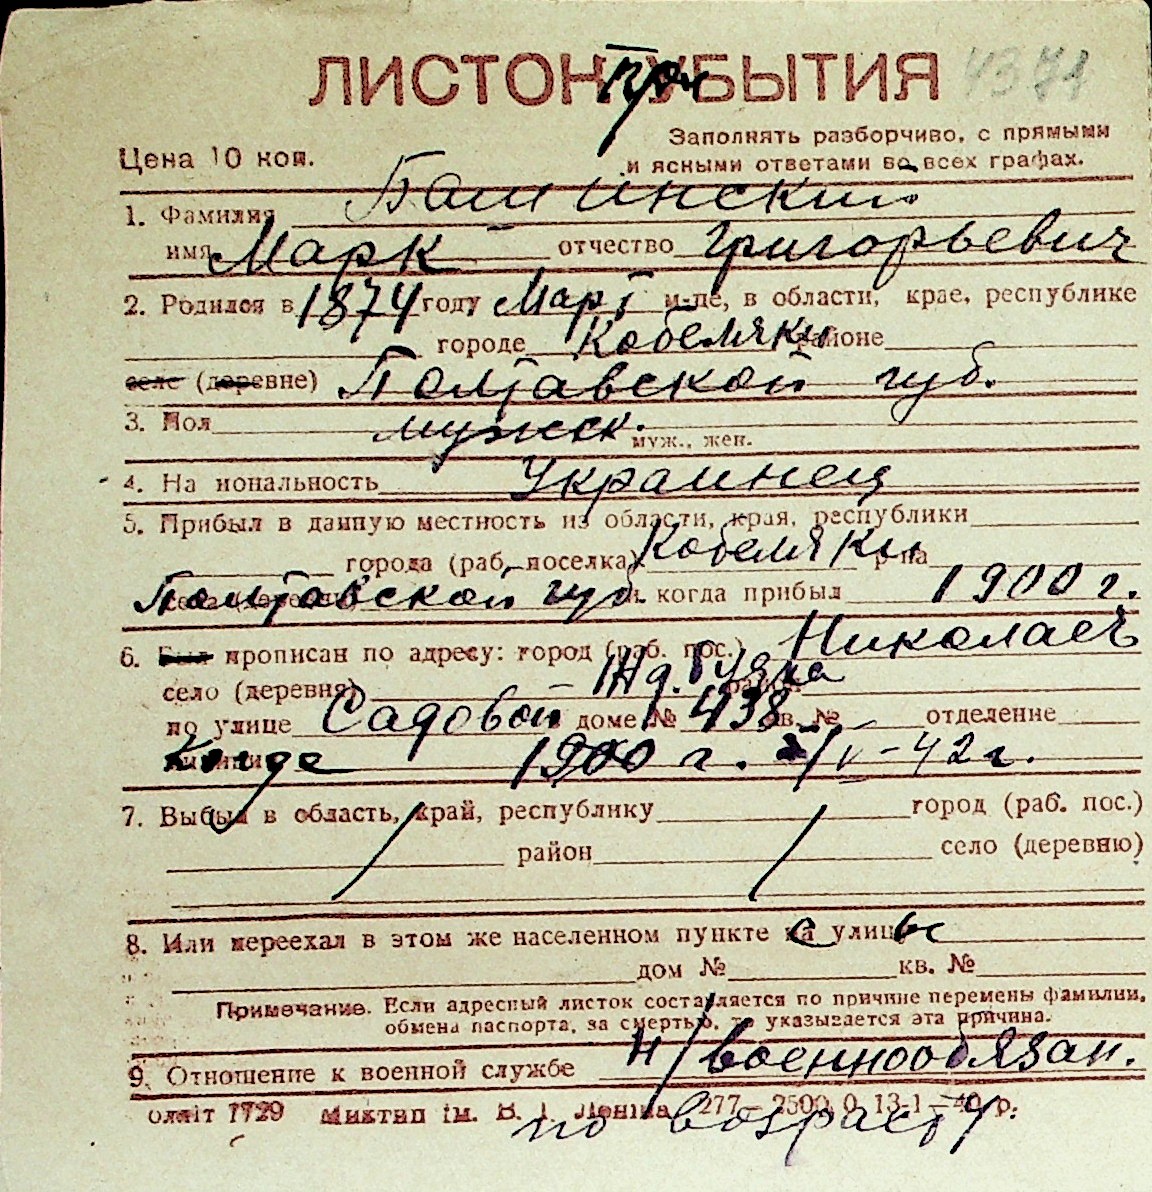 ЛИСТОК УБЫТИЯ 4371
Заполнять разборчиво, с прямыми
Цена 10 коп. и ясными ответами во всех графах.
1. Фамилия Башинский
имя Марк отчество Григорьевич
2. Родился в 1874 году Март м-це, в области, крае, республике
городе Кобеляки районе
селе (деревне) Полтавской губ.
3. Пол мужск. муж., жен.
4. Национальность Украинец
5. Прибыл в данную местность из области, края, республики
города (раб. поселка) Кобеляки р-на
Полтавской губ. и когда прибыл 1900 г.
6. Был прописан по адресу: город (раб. пос.) Николаев
село (деревня)
по улице Садовой доме № 438 кв. № отделение
1900 г. IV-42 г.
7. Выбыл в область, край, республику город (раб. пос.)
район село (деревню)
8. Или переехал в этом же населенном пункте улицы
дом № кв. №
Примечание. Если адресный листок составляется по причине перемены фамилии,
обмена паспорта, за смертью, то указывается эта причина.
9. Отношение к военной службе н/военнообязан.
Обліт 7729 Миктип ім. В. І. Леніна 277—2500 0 13-1—40 р.
по возрасту